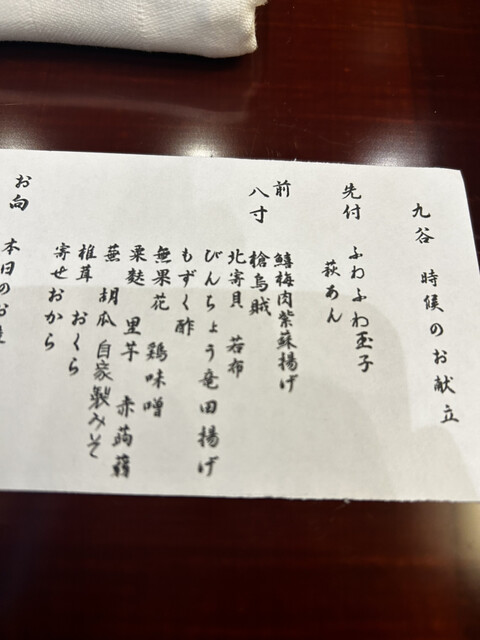 九谷 時候のお献立
先付 ふわふわ玉子
萩あん
前
八寸 鱚梅肉紫蘇揚げ
槍烏賊
北寄貝 若布
びんちょう竜田揚げ
もずく酢
無果花 鶏味噌
粟麩 里芋 赤蒟蒻
蕪 胡瓜 自家製みそ
椎茸 おくら
寄せおから
お向 本日のお